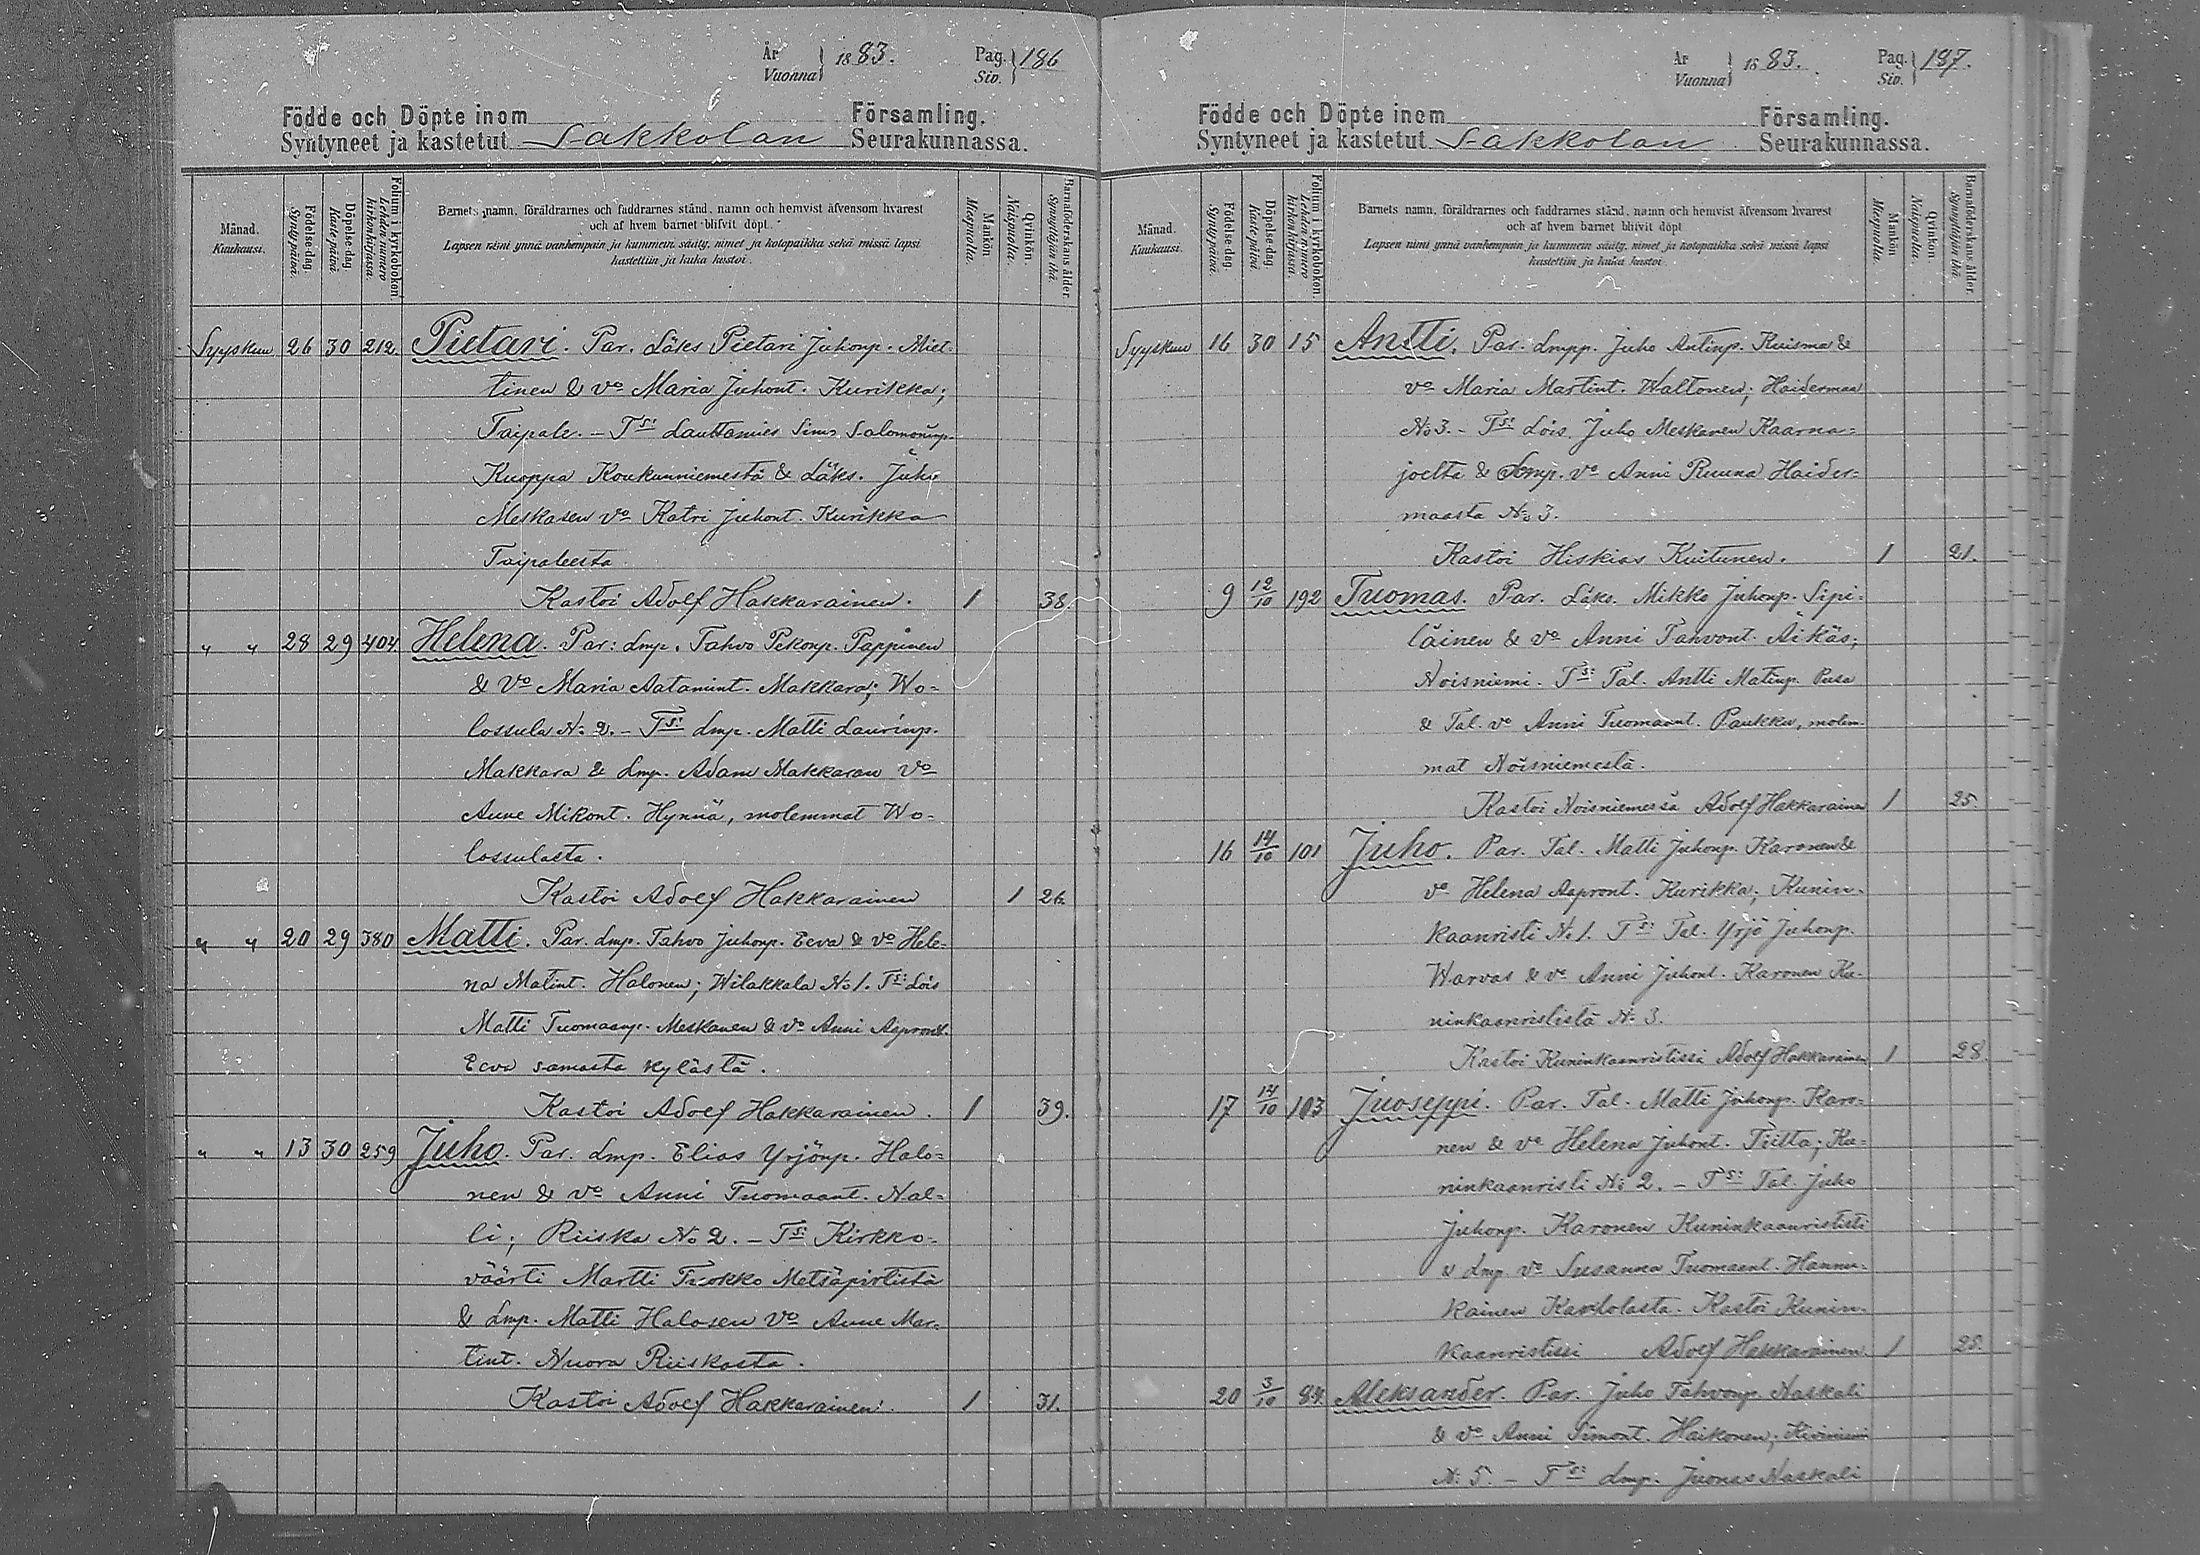 År
Vuonna } 1883. Pag.
Siv. } 186
Födde och Döpte inom Församling.
Syntyneet ja kastetut Sakkolan Seurakunnassa.
Månad.
Kuukausi.
Födelse-dag.
Syntypäivä.
Döpelse-dag.
Kastepäivä.
Folium i kyrkoboken.
Lehden numero
kirkonkirjassa.
Barnets namn, föräldrarnes och faddrarnes stånd, namn och hemvist äfvensom hvarest
och af hvem barnet blifvit döpt.
Lapsen nimi ynnä vanhempain ja kummein sääty, nimet ja kotopaikka sekä missä lapsi
kastettiin ja kuka kastoi.
Mankön
Miespuolia.
Qvinkön.
Naispuolia.
Barnaföderskans ålder.
Synnyttäjän ikä.
Syyskuu 26 30 212 Pietari. Par. Läks Pietari Juhonp. Miet-
tinen & vo Maria Juhont. Kurikka;
Taipale. – Ts: Lauttamies Simo Salomoninp.
Kuoppa Koukunniemestä & Läks. Juho
Meskasen vo Katri Juhont. Kurikka
Taipaleesta.
Kastoi Adolf Hakkarainen. 1 38.
" " 28 29 404 Helena. Par: Lmp. Tahvo Pekonp. Pappinen
& vo Maria Aatamint. Makkara; Wo-
lossula No 2. – Ts: Lmp. Matti Laurinp.
Makkara & Lmp. Adam Makkaran vo
Anne Mikont. Hynnä, molemmat Wo-
lossulasta.
Kastoi Adolf Hakkarainen 1 26.
" " 20 29 380 Matti. Par. Lmp. Tahvo Juhonp. Eeva & vo Hele-
na Matint. Halonen; Wilakkala No 1. Ts: Lois
Matti Tuomaanp. Meskanen & vo Anni Aapront.
Eeva samasta kylästä.
Kastoi Adolf Hakkarainen. 1 39.
" " 13 30 259 Juho. Par. Lmp. Elias Yrjönp. Halo-
nen & vo Anni Tuomaant. Nal-
li; Riiska No 2. – Ts: Kirkko-
väärti Martti Tuokko Metsäpirtistä
& Lmp. Matti Halosen vo Anne Mar-
tint. Nuora Riiskasta.
Kastoi Adolf Hakkarainen. 1 31.
År
Vuonna } 1883. Pag.
Siv. } 187.
Födde och Döpte inom Församling.
Syntyneet ja kastetut Sakkolan Seurakunnassa.
Månad.
Kuukausi.
Födelse-dag.
Syntypäivä.
Döpelse-dag.
Kastepäivä.
Folium i kyrkoboken.
Lehden numero
kirkonkirjassa.
Barnets namn, föräldrarnes och faddrarnes stånd, namn och hemvist äfvensom hvarest
och af hvem barnet blifvit döpt
Lapsen nimi ynnä vanhempain ja kummein sääty, nimet ja kotopaikka sekä missä lapsi
kastettiin ja kuka kastoi.
Mankön
Miespuolia.
Qvinkön.
Naispuolia.
Barnaföderskans ålder.
Synnyttäjän ikä.
Syyskuu 16 30 15 Antti. Par. Lmpp. Juho Antinp. Kuisma &
vo Maria Martint. Waltonen; Haiderman
No 3. – Ts: Lois. Juho Meskanen Kaarna-
joelta & Lmp. vo Anni Ruuna Haider-
maasta No 3.
Kastoi Hiskias Kuitunen. 1 21.
9 12/10 192 Tuomas. Par. Läks. Mikko Juhonp. Sipi-
läinen & vo Anni Tahvont. Äikäs;
Noisniemi. Ts: Tal. Antti Matinp. Pusa
& Tal. vo Anni Tuomaant. Paukku, molem-
mat Noisniemestä.
Kastoi Noisniemessä Adolf Hakkarainen 1 25.
16 14/10 101 Juho. Par. Tal. Matti Juhonp. Karonen &
vo Helena Aapront. Kurikka; Kunin-
kaanristi No 1. Ts: Tal. Yrjö Juhonp.
Warvas & vo Anni Juhont. Karonen Ku-
ninkaanrististä No 3.
Kastoi Kuninkaanristissä Adolf Hakkarainen 1 28.
17 14/10 103 Juoseppi. Par. Tal. Matti Juhonp. Karo-
nen & vo Helena Juhont. Tiitta; Ku-
ninkaanristi No 2. – Ts: Tal. Juho
Juhonp. Karonen Kuninkaanrististi
& Lmp. vo Susanna Tuomaant. Hannu-
kainen Karholasta. Kastoi Kunin-
kaanristissi Adolf Hakkarainen. 1 25.
20 3/10 84 Aleksander. Par. Juho Tahvonp. Naskali
& vo Anni Simont. Haikonen; Kiviniemi
No 5. – Ts: Lmp. Juonas Naskali